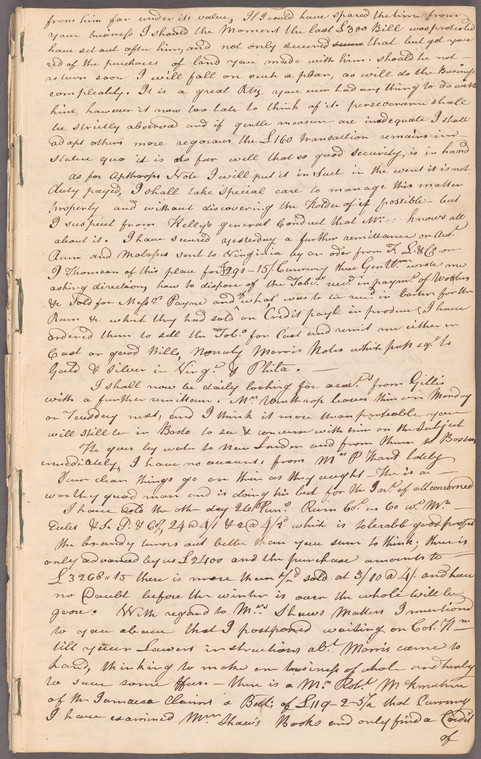 from him far under its value, If I could have spared the time from
your business I should the Moment the last £300 Bill was protested
have set out after him, and not only secured that but got you
rid of the purchases of land you made with him. should he not
return soon I will fall on such a plan, as will do the Business
compleatly. It is a great Pity you ever had any thing to do with
him, however it now too late to think of it. perseverance shall
be strictly observed and if gentle measure are inadequate I shall
adopt others more regorous the £160 transaction remains in
statue quo it is so far well that so good security, is in hand
as for Apthorps Note I will put it in suit in the event it is not
duly payed, I shall take special care to manage this matter
properly and without discovering the Holder of if possible - but
I suspect from Kelly's general Conduct that Mr. - knows all
about it. I have secured yesterday a further remittance on Acct.
Rum and Molasses sent to Virginia by an oder from F. L. & Co on
I Thomson of this place for £290-15/ Currency these Gentlmn wrote me
asking directions how to dispose of the Tobo. recd in paymt. of Woolens
& Sold for Messrs. Payne and what was to be recd in barter for the
Rum & what they had sold on Credit payle in produce; I have
ordered them to sell the Tobo. for Cash and remit me either in
Cash or good Bills, Namely Morris Notes which pass eql to
Gold & Silver in Virga. & Phila. -
I shall now be daily looking for acct.s from Gillis
with a further remittance. Mr. Winthrop leaves this on Monday
or Tuesday next, and I think it more than probable you
will still be in Bosto to see & converse with him on the Subject
He goes by water to New London and from thence to Boston
immediately, I have no accounts from Mr P. Hard lately
I am clear things go on there as they ought - He is a
worthy good man and is doing his best for the Int. of all concerned
I have sold the other day 26 Puns. Rum 60. is 60 wr. Mr.
Eules & S. P. & 68, 24 @ 4/1 & 2 @ 4/2 which is tolerable good profit
the brandy turns out better than you seem to think; there is
only advanced by us £2400 and the purchase amounts to
£3268"15 there is more than ½ sold at 3/10 @ 4/ and have
no Doubt before the winter is over the whole will be
gone. With regard to Mrs. Shaws Matters I mentioned
to you above that I postponed waiting on Col. Wm
till your Lawers instructions abt. Morris came to
hand, thinking to make one business of whole and thereby
to save some Expence - there is a Mr. Robt. McKmatrie
of the Jamaica Claims a Bale. of £119-2-5½ that Currency
I have examined Mrs Shaw's Books and only find a Credit
of